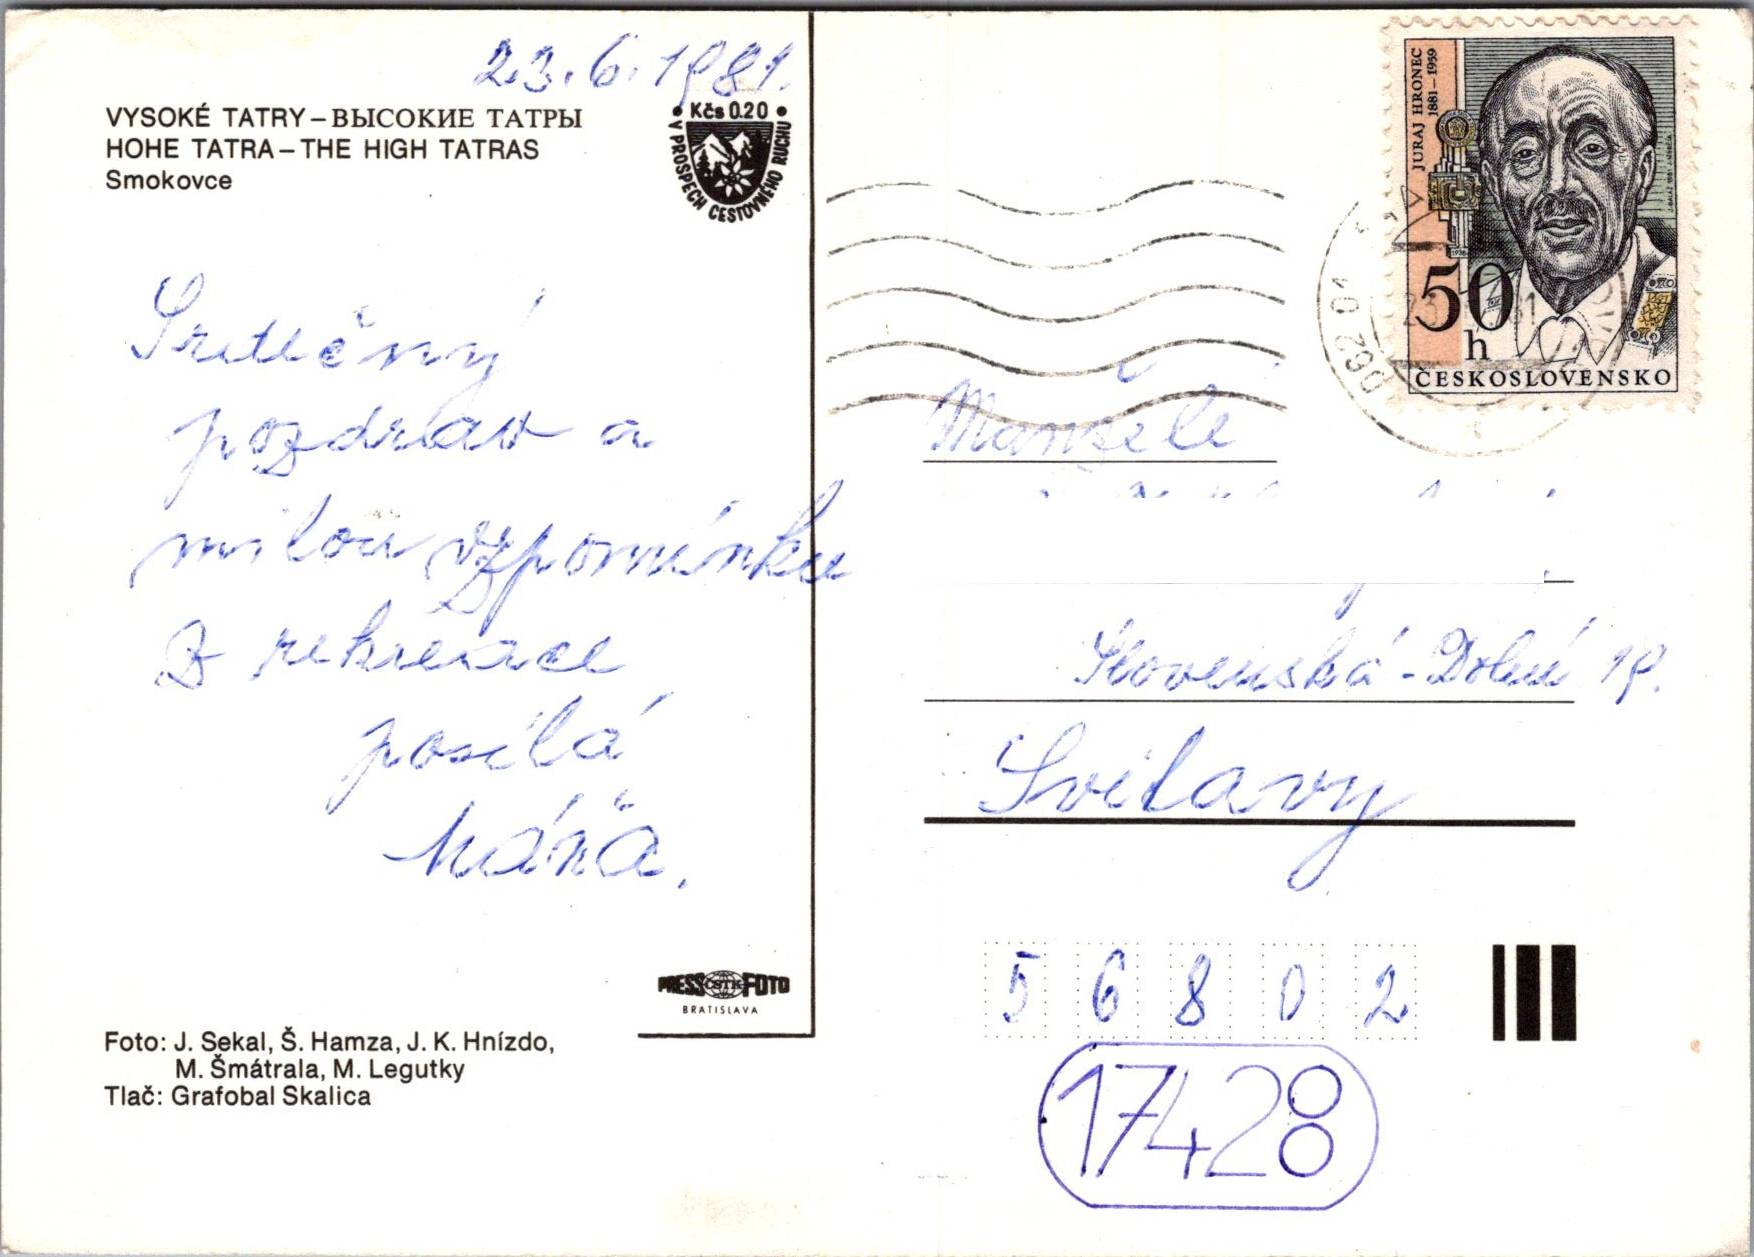 23.6.1981.
VYSOKÉ TATRY – ВЫСОКИЕ ТАТРЫ
HOHE TATRA – THE HIGH TATRAS
Smokovce
Kčs 0.20
V PROSPECH CESTOVNÉHO RUCHU
Srdečný
pozdrav a
milou vzpomínku
z rekreace
posílá
Máňa.
PRESS ČSTK FOTO
BRATISLAVA
Foto: J. Sekal, Š. Hamza, J. K. Hnízdo,
M. Šmátrala, M. Legutky
Tlač: Grafobal Skalica
JURAJ HRONEC
1881–1959
50
h
ČESKOSLOVENSKO
062 01
Manželé
Slovenská - Dolní 19.
Svitavy
56802
17428